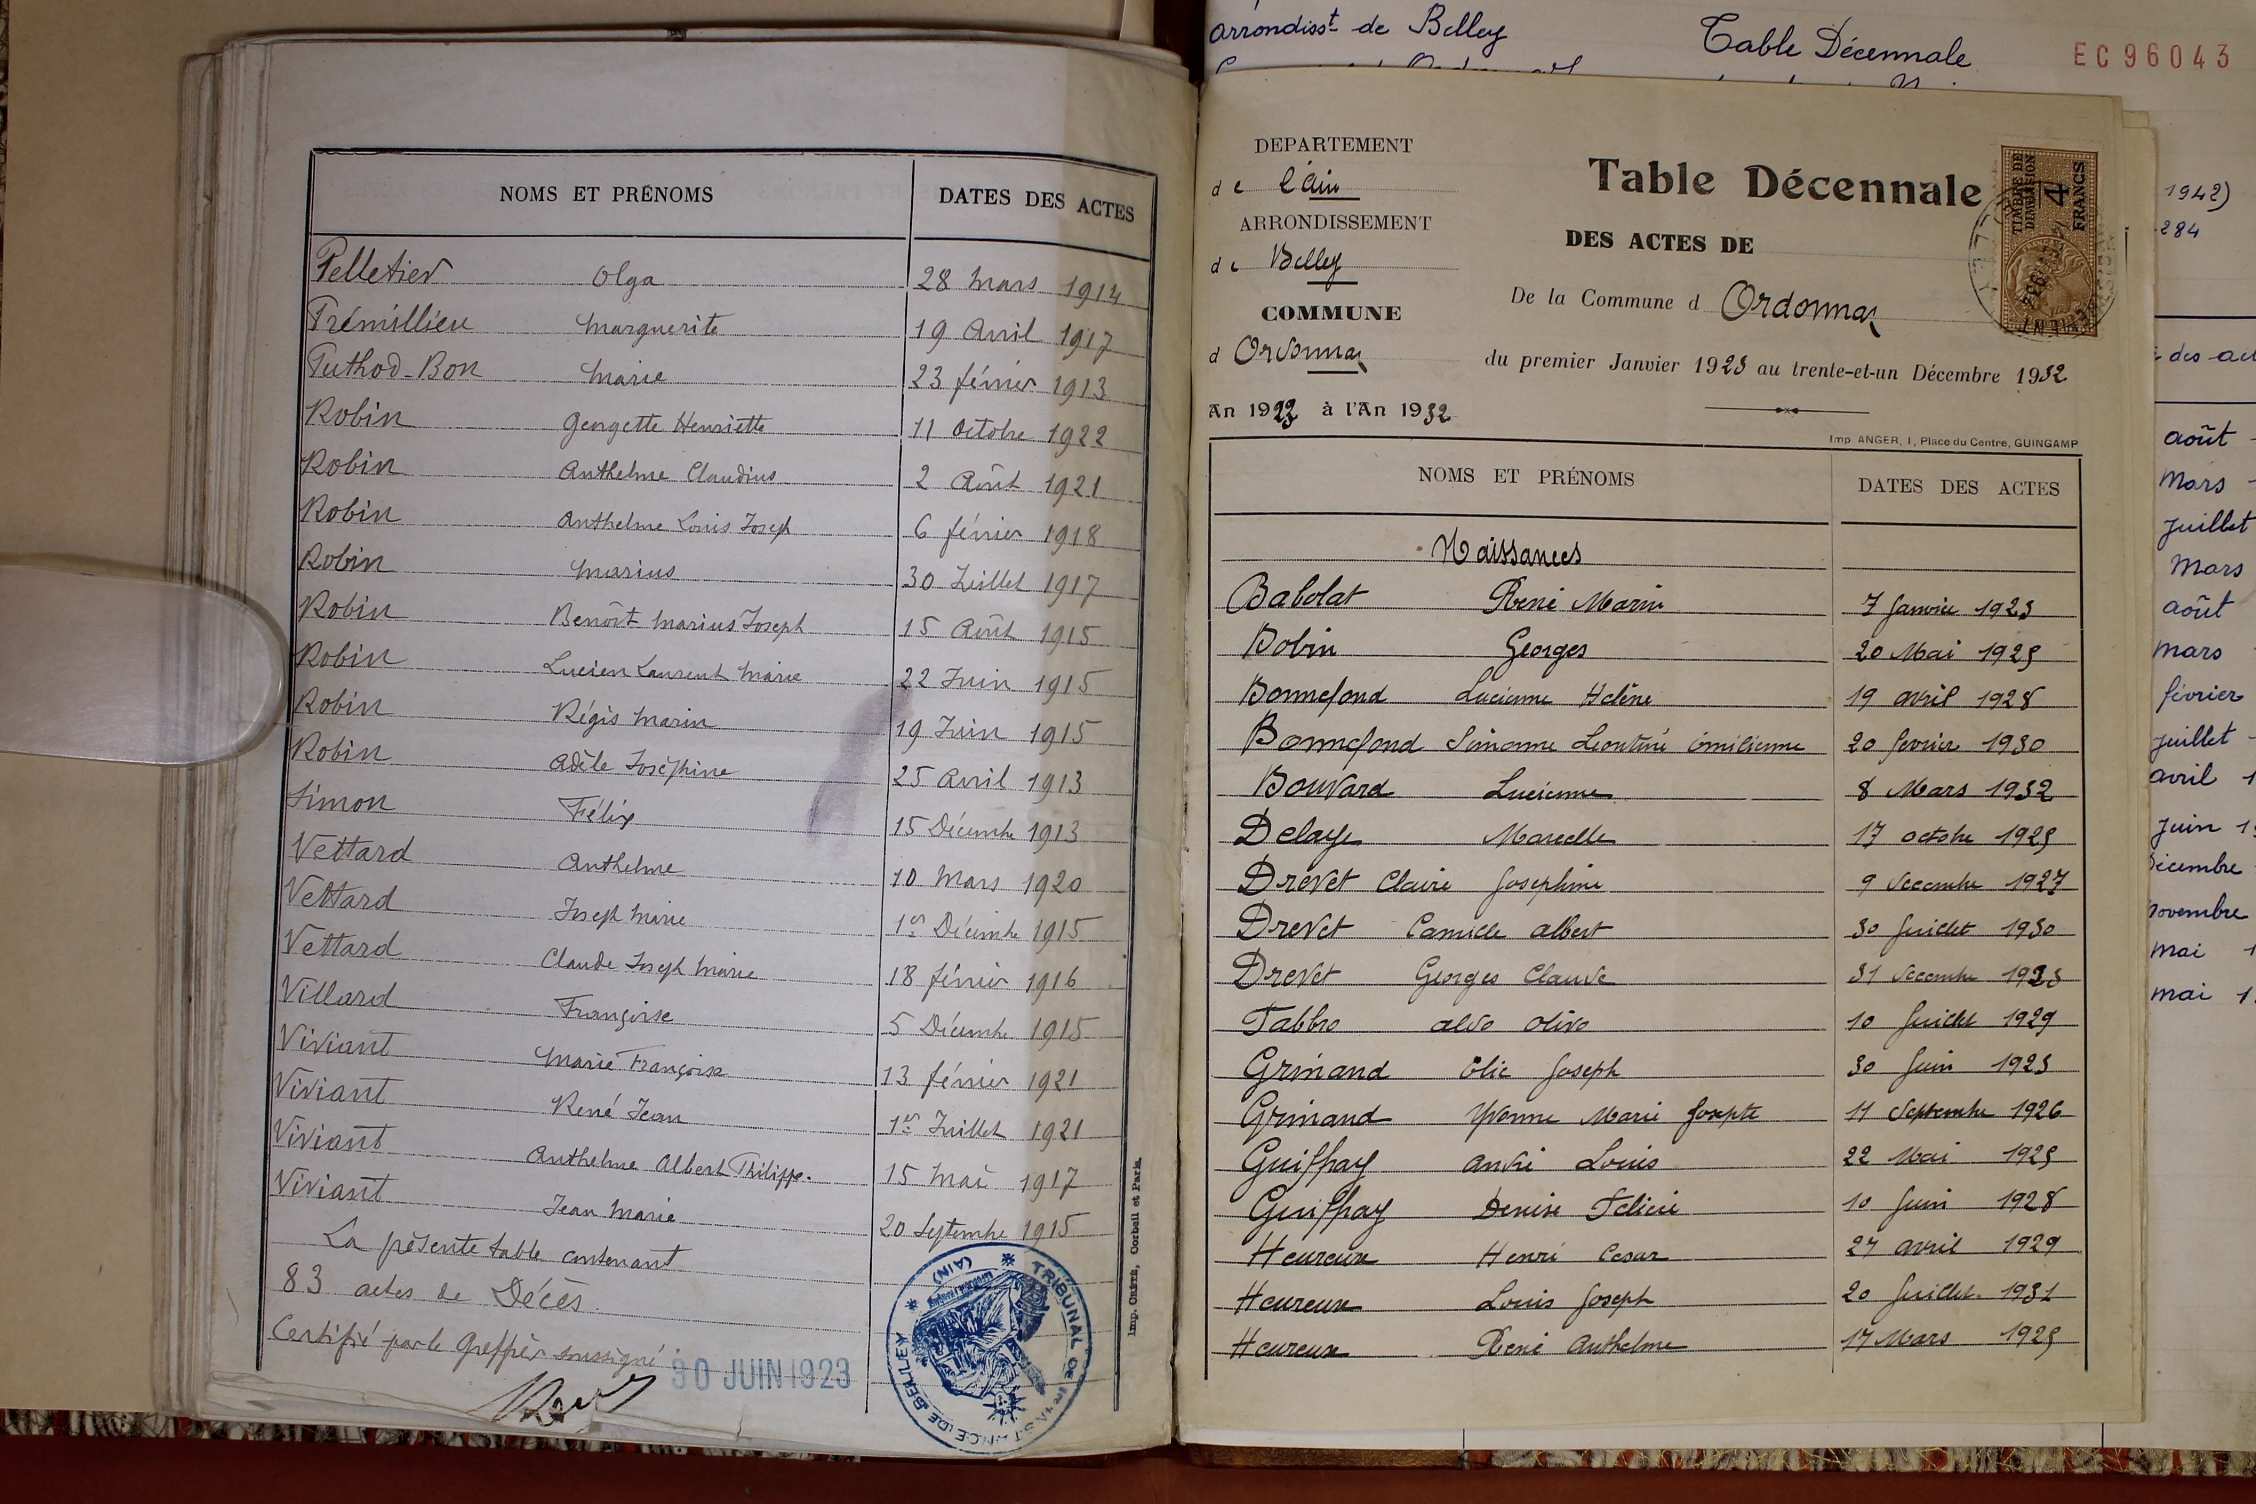 NOMS ET PRÉNOMS DATES DES ACTES
Pelletier Olga 28 mars 1914
Trémillieu Marguerite 19 Avril 1917
Tuthod-Bon Marie 23 février 1913
Robin Georgette Henriette 11 Octobre 1922
Robin Anthelme Claudius 2 Août 1921
Robin Anthelme Louis Joseph 6 février 1918
Robin Marius 30 Juillet 1917
Robin Benoît Marius Joseph 15 Août 1915
Robin Lucien Laurent Marie 22 Juin 1915
Robin Régis Marin 19 Juin 1915
Robin Adèle Joséphine 25 Avril 1913
Simon Félix 15 Décembre 1913
Vettard Anthelme 10 Mars 1920
Vettard Joseph Marie 1er Décembre 1915
Vettard Claude Joseph Marie 18 février 1916
Villard Françoise 5 Décembre 1915
Viviant Marie Françoise 13 février 1921
Viviant René Jean 1er Juillet 1921
Viviant Anthelme Albert Philippe. 15 Mai 1917
Viviant Jean Marie 20 Septembre 1915
La présente table contenant
83 actes de Décès.
Certifié par le Greffier soussigné
30 JUIN 1923
TRIBUNAL DE 1re INSTANCE DE BELLEY (AIN)
Imp. CRÉTÉ, Corbeil et Paris.
arrondisst de Belley Table Décennale EC96043
DEPARTEMENT
de l'Ain
ARRONDISSEMENT
de Belley
COMMUNE
d Ordonnaz
An 1923 à l'An 1932
Table Décennale
DES ACTES DE
De la Commune d Ordonnaz
du premier Janvier 1923 au trente-et-un Décembre 1932
TIMBRE DE DIMENSION 4 FRANCS
Imp ANGER, 1, Place du Centre, GUINGAMP
NOMS ET PRÉNOMS DATES DES ACTES
Naissances
Babolat René Marin 7 Janvier 1923
Bobin Georges 20 Mai 1925
Bonnefond Lucienne Hélène 19 avril 1928
Bonnefond Simonne Léontine émilienne 20 fevrier 1930
Bouvard Lucienne 8 Mars 1932
Delaye Marcelle 17 octobre 1925
Drevet Claire Josephine 9 decembre 1927
Drevet Camille albert 30 Juillet 1930
Drevet Georges Claude 31 decembre 1923
Fabbro aldo olivo 10 Juillet 1929
Grinand élie Joseph 30 Juin 1923
Grinand Yvonne Marie Josepte 11 Septembre 1926
Guiffray andré Louis 22 Mai 1925
Guiffray Denise Félicie 10 Juin 1928
Heureux Henri Cesar 27 avril 1929
Heureux Louis Joseph 20 Juillet 1931
Heureux René Anthelme 17 Mars 1925
1942)
284
des act
août
mars
juillet
mars
août
mars
février
juillet
avril
juin
décembre
novembre
mai
mai